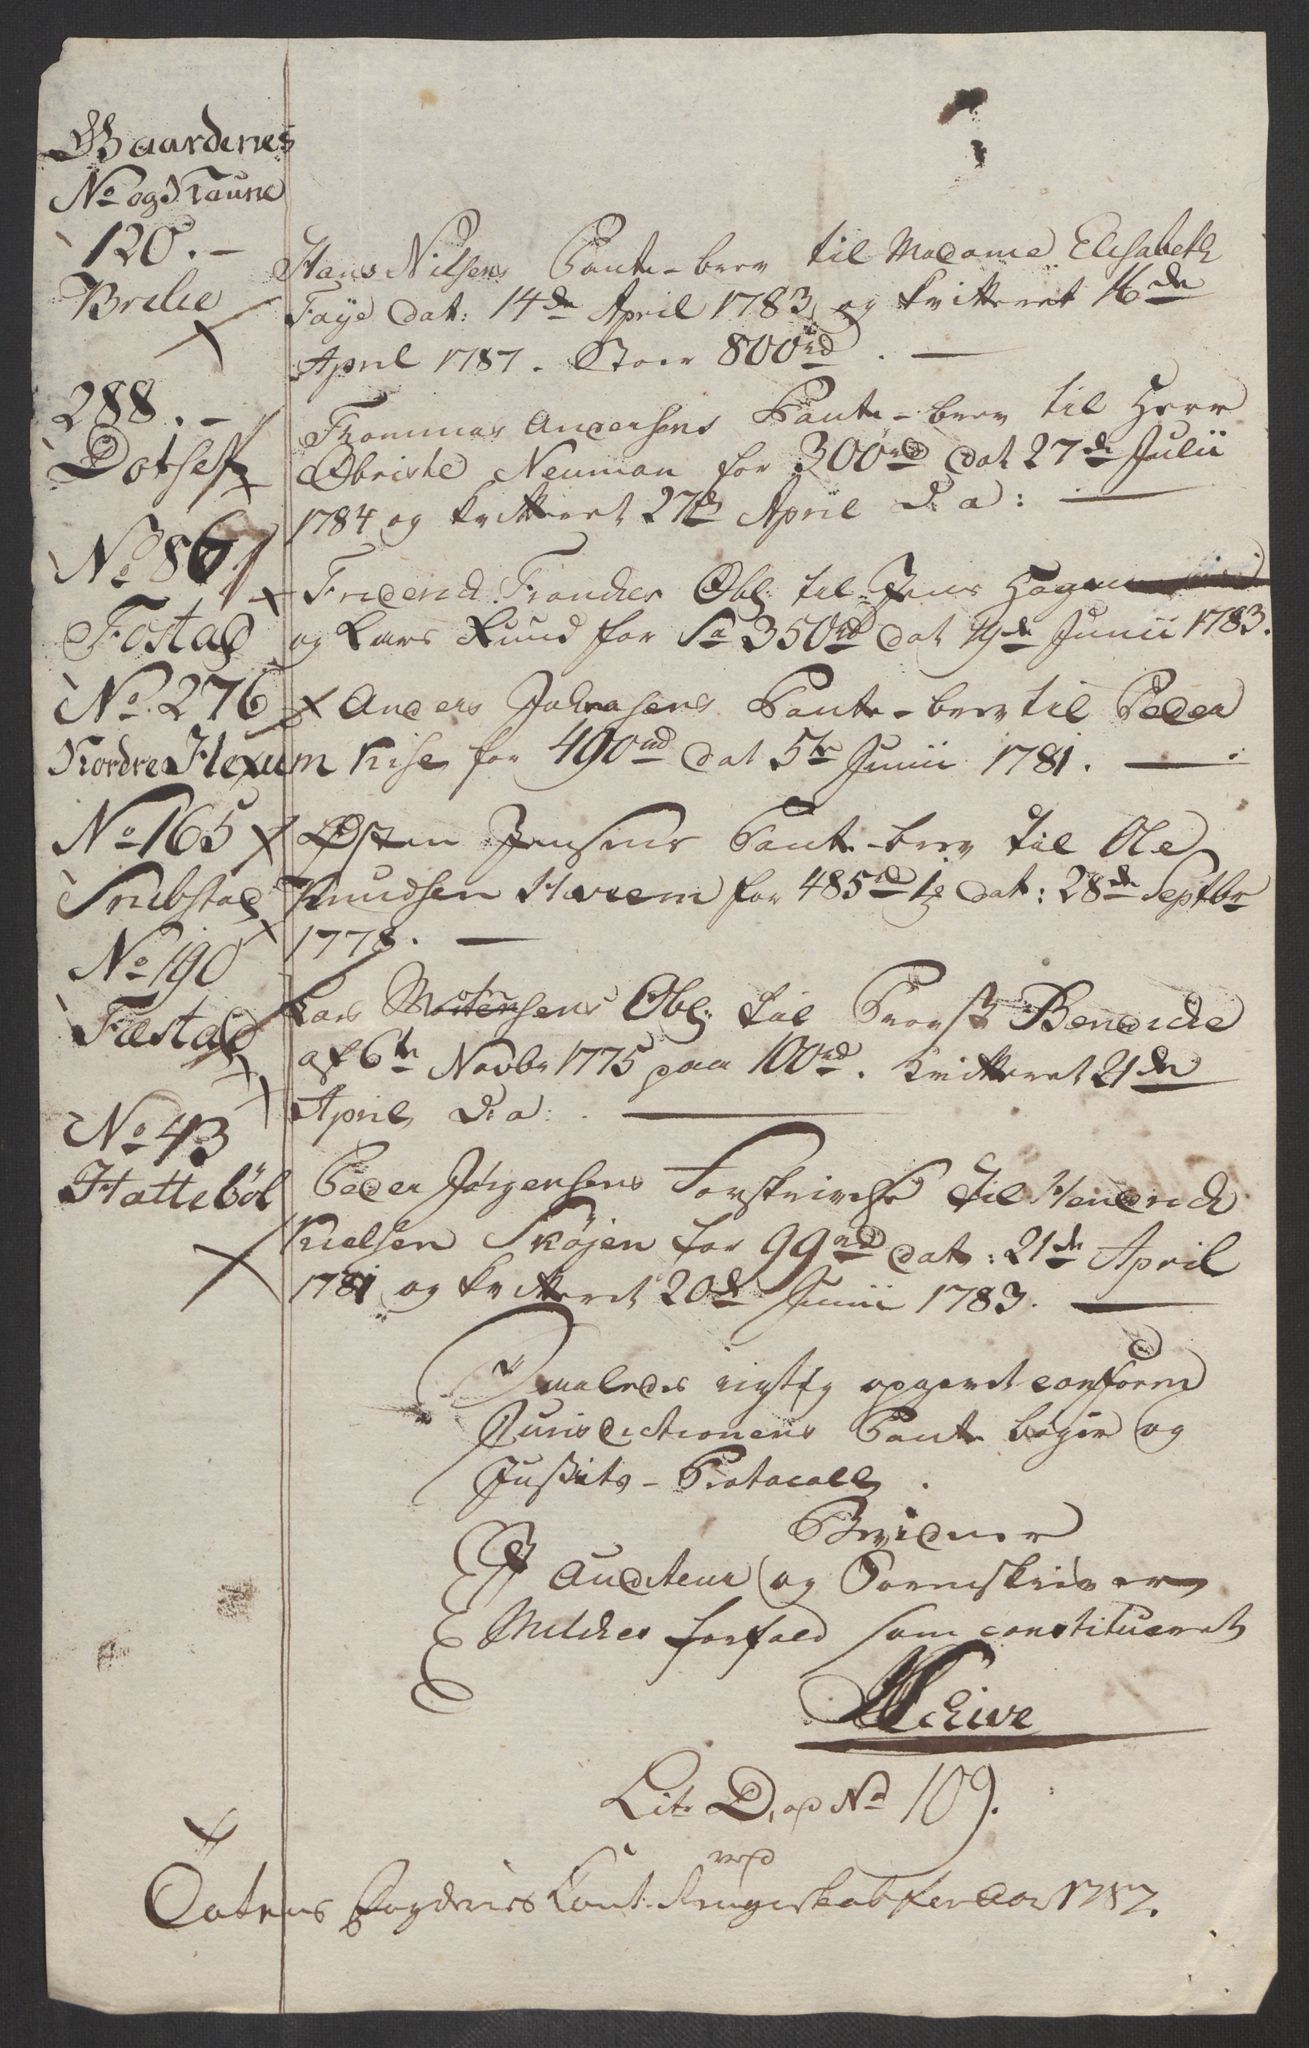 Gaardenes
No og Naune
120. -
Brelie
Hans Nilsens Pante-brev til Madame Elisabeth
Faye dat: 14de April 1783 og kvitteret 16de
April 1787. Stoer 800rd. -
288. -
Dotset
Thommas Andersens Pante-brev til Herr
Obriste Neuman for 300rd dat 27de Julii
1784 og kvitteret 27de April d: a: -
No 86
Fostad
Friderich Franckes Obl: til Jens Hagen
og Lars Lund for 350rd dat 19de Junii 1783.
No. 276
Nordre Hexum
Anders Johnsens Pante-brev til Peder
Kise for 490rd dat 5te Junii 1781. -
No 165
Sribstad
Østen Jensens Pante-brev til Ole
Knudsen Haeem for 485rd dat: 28de Septbr
1778. -
No 190
Fæstad
Lars Mortensens Obl: til Provst Bendicke
af 6te Novbr 1775 paa 100rd. Kvitteret 21de
April d: a: -
No 43
Hattebøl
Peder Jørgensens Forskrivelse til Hendrich
Nielsen Skøjen for 99rd dat: 21de April
1781 og kvitteret 20de Junii 1783. -
Saaledes rigtig opgivet conform
Jurisdictionens Pante bøger og
Justits-Protocoll.
Bevidner
I Auditeur og Sorenskriver
Meldes forfald som constitueret
Schive
Litr D, ad No 109.
ved
Totens Fogderies Cont: Regenskab for Aar 1787.